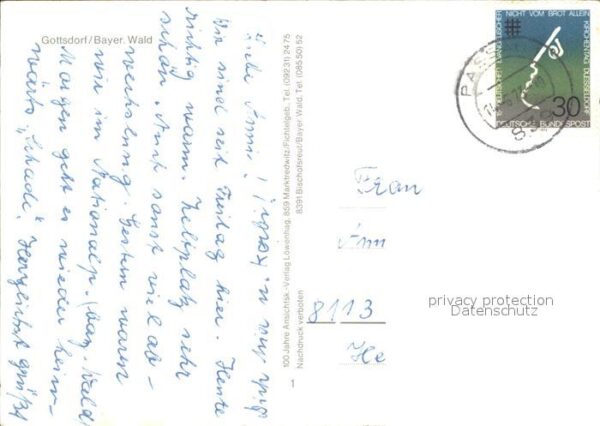 Gottsdorf/Bayer. Wald
Liebe Anni!
Wir sind seit Freitag hier. Heute
richtig warm. Zeltplatz sehr
schön. Auch sonst viel ab-
wechslung. Gestern waren
wir im Nationalp. (bay. Wald)
Morgen geht es wieder heim-
wärts „Schade". Herzlichst grüßt
100 Jahre Ansichtsk.-Verlag Löwenhag, 859 Marktredwitz/Fichtelgeb. Tel. (09231) 2475
8391 Bischofsreut/Bayer Wald. Tel. (08550) 52
Nachdruck verboten
1
15. DEUTSCHER EVANGELISCHER KIRCHENTAG DUESSELDORF
NICHT VOM BROT ALLEIN
30
DEUTSCHE BUNDESPOST
PASS
Frau
8113
privacy protection
Datenschutz